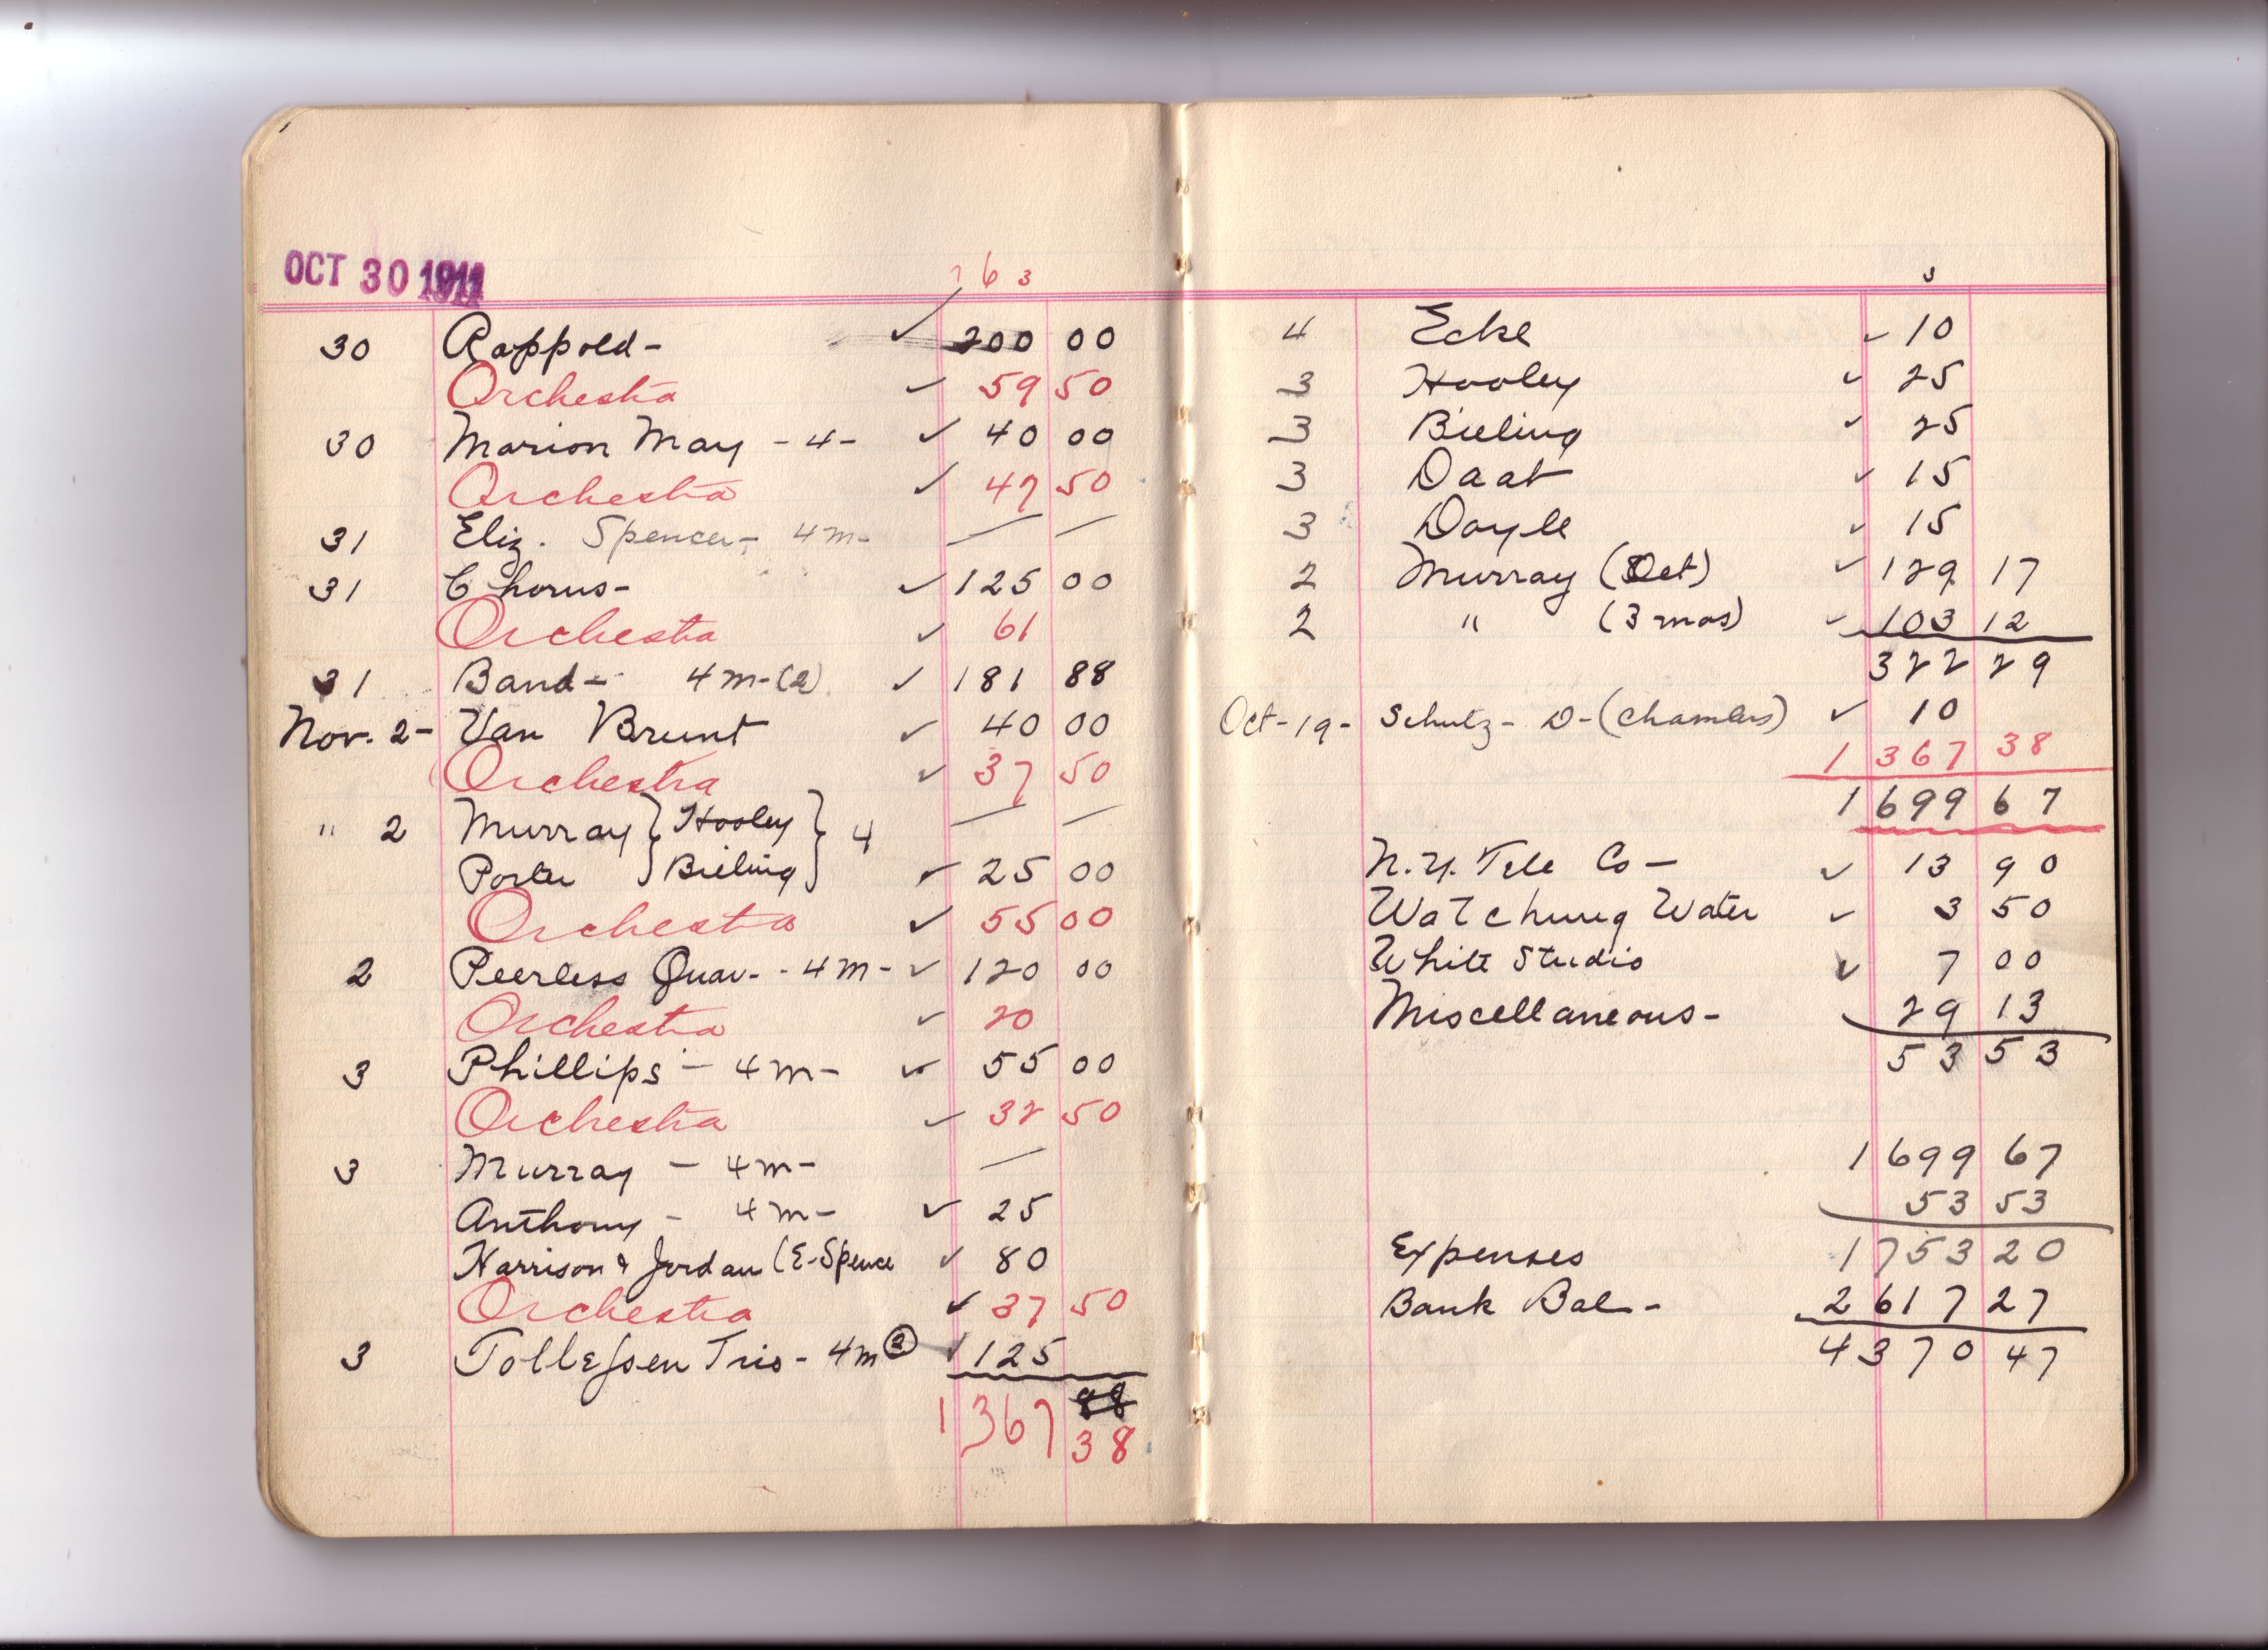 OCT 30 1911
1 6 3
30 Rappold- ✓ 200 00
Orchestra ✓ 59 50
30 Marion May - 4 - ✓ 40 00
Orchestra ✓ 47 50
31 Eliz. Spencer- 4m- — —
31 Chorus- ✓ 125 00
Orchestra ✓ 61
31 Band- 4m-(2) ✓ 181 88
Nov. 2- Van Brunt ✓ 40 00
Orchestra ✓ 37 50
" 2 Murray } Hooley } 4 — —
Porter } Bieling } ✓ 25 00
Orchestra ✓ 55 00
2 Peerless Quar- - 4m- ✓ 120 00
Orchestra ✓ 20
3 Phillips - 4m- ✓ 55 00
Orchestra ✓ 32 50
3 Murray - 4m- —
Anthony - 4m- ✓ 25
Harrison & Jordan (E-Spence ✓ 80
Orchestra ✓ 37 50
3 Tollefsen Trio- 4m ② ✓ 125
88
1 367 38
3
4 Ecke ✓ 10
3 Hooley ✓ 25
3 Bieling ✓ 25
3 Daab ✓ 15
3 Doyle ✓ 15
2 Murray (Oct) ✓ 129 17
2 " (3 mos) ✓ 103 12
322 29
Oct-19- Schulz- D-(Chambers) ✓ 10
1 367 38
1 699 67
N.Y. Tele Co- ✓ 13 90
Watchung Water ✓ 3 50
White Studio ✓ 7 00
Miscellaneous- 29 13
53 53
1 699 67
53 53
Expenses 1 753 20
Bank Bal- 2 617 27
4 370 47